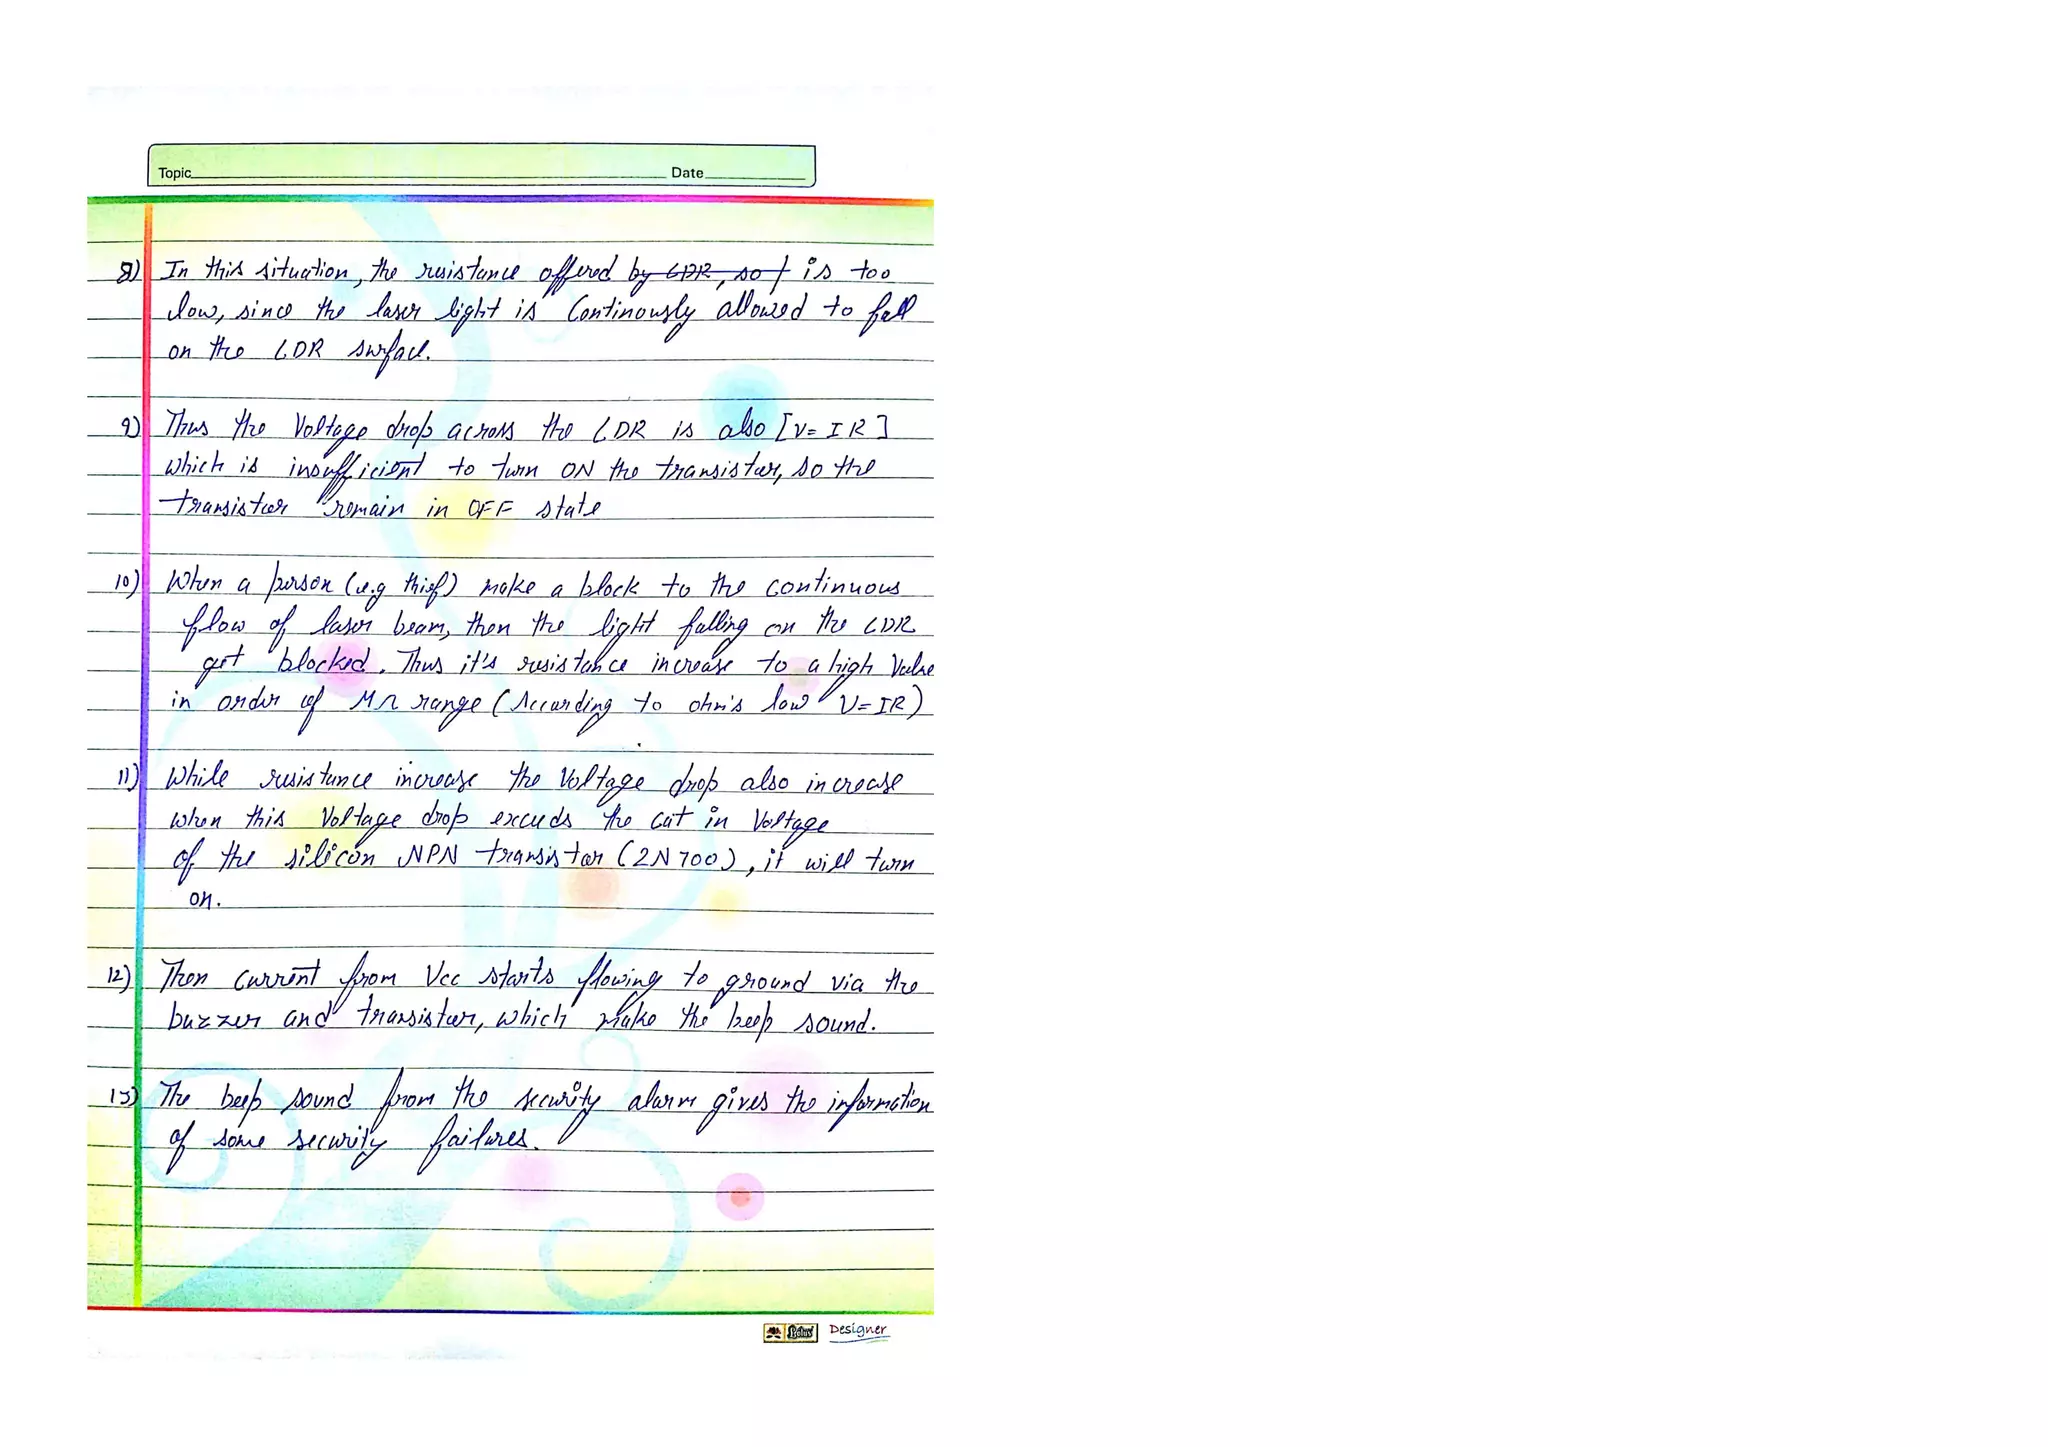 Topic Date
8) In this situation, the resistance offered by LDR, so t is too
low, since the laser light is Continously allowed to fall
on the LDR surface.
9) Thus the Voltage drop across the LDR is also [V= IR]
which is insufficient to turn ON the transistor, so the
transistor remain in OFF state
10) When a person (e.g thief) make a block to the continuous
flow of laser beam, then the light falling on the LDR
get blocked. Thus it's resistance increase to a high Value
in order of MΩ range (According to ohm's law V=IR)
11) While resistance increase the Voltage drop also increase
when this Voltage drop exceeds the cut in Voltage
of the silicon NPN transistor (2N700), it will turn
on.
12) Then current from Vcc starts flowing to ground via the
buzzer and transistor, which make the beep sound.
13) The beep sound from the security alarm gives the information
of some security failures.
Lotus Designer